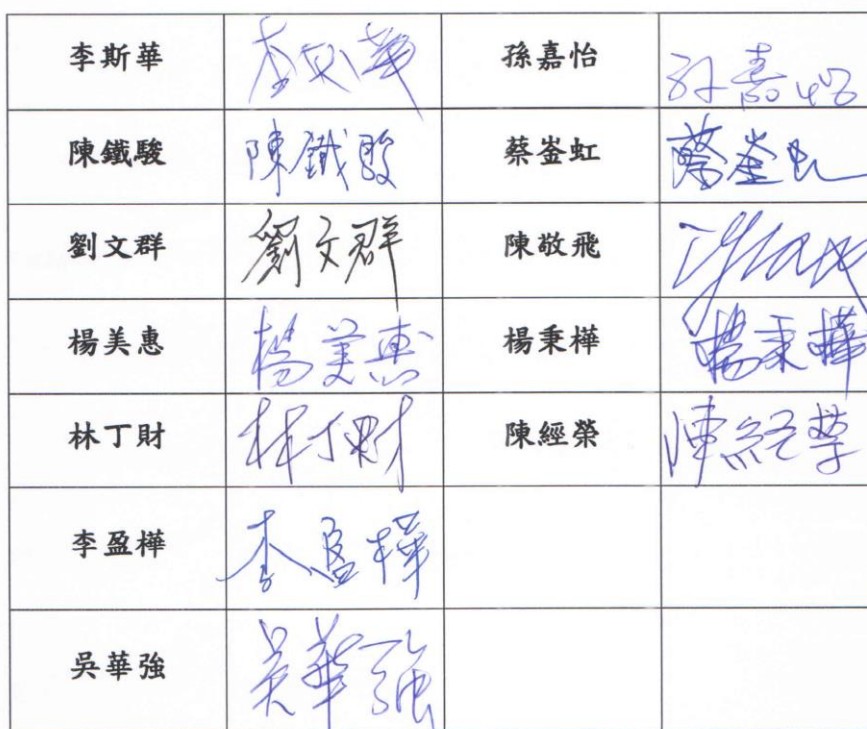 李斯華 李斯華 孫嘉怡 孫嘉怡
陳鐵駿 陳鐵駿 蔡崟虹 蔡崟虹
劉文群 劉文群 陳敬飛
楊美惠 楊美惠 楊秉樺 楊秉樺
林丁財 林丁財 陳經榮 陳經榮
李盈樺 李盈樺
吳華強 吳華強